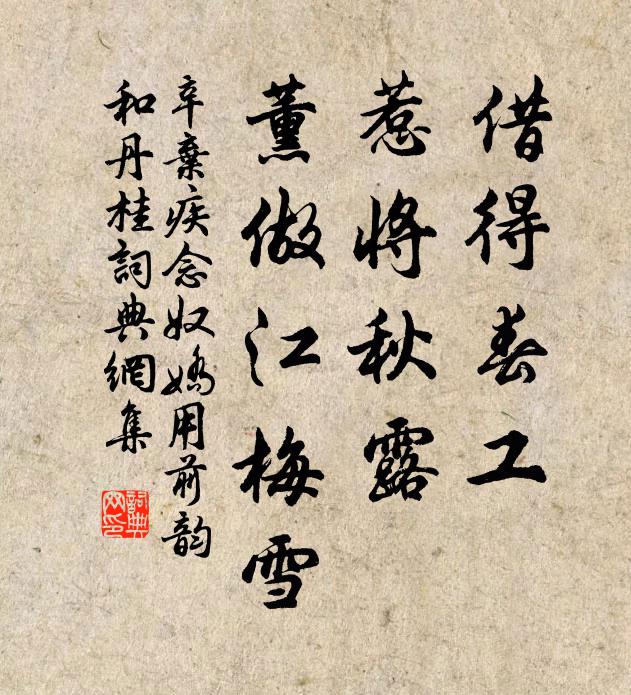 借得春工
惹將秋露
薰做江梅雪
辛棄疾念奴嬌用前韵
和丹桂詞典網集
詞典网印